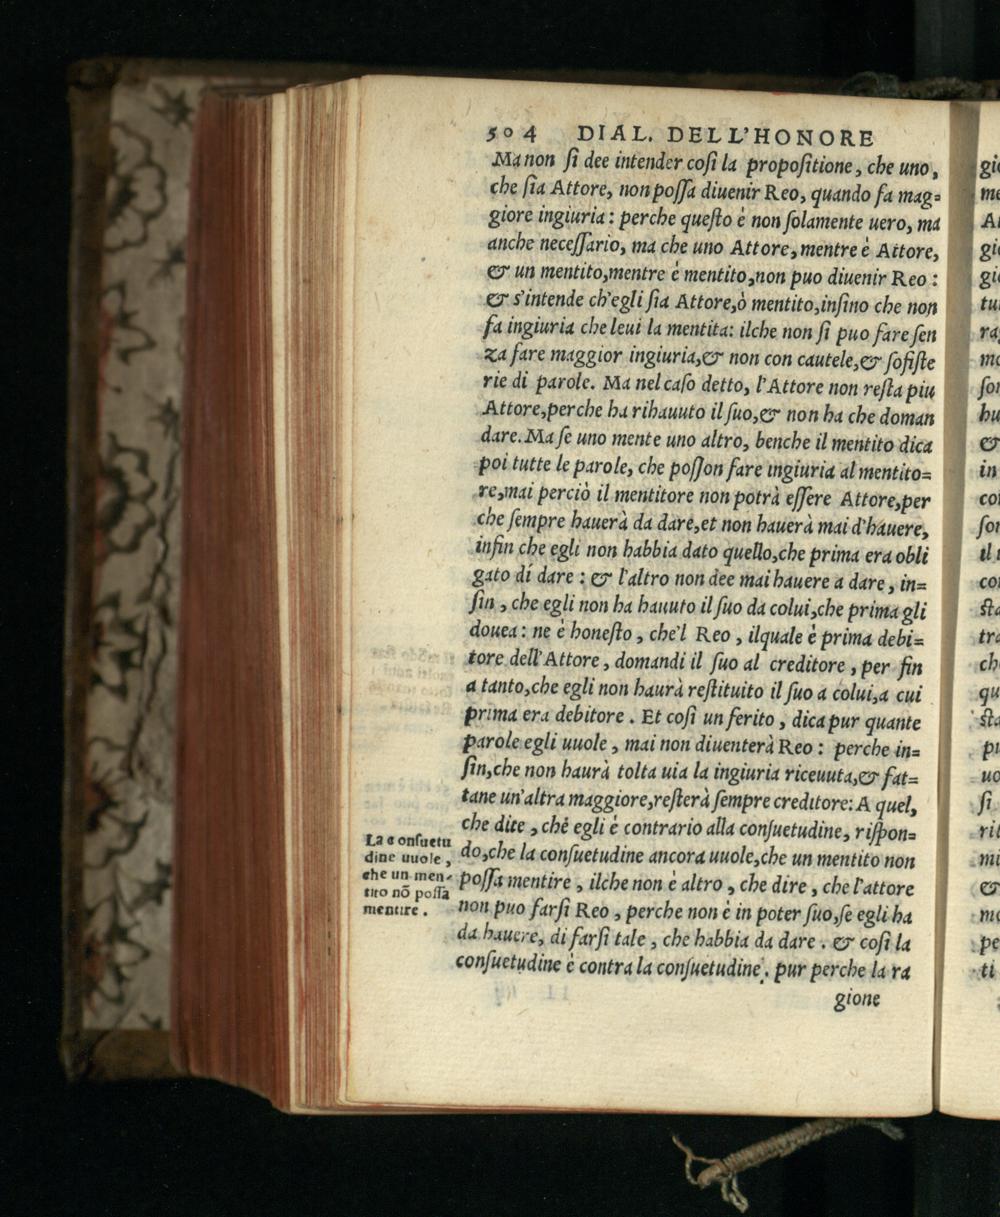 504 DIAL. DELL'HONORE
Ma non ſi dee intender coſi la propoſitione, che uno,
che ſia Attore, non poſſa diuenir Reo, quando fa mag=
giore ingiuria: perche queſto è non ſolamente uero, ma
anche neceſſario, ma che uno Attore, mentre è Attore,
& un mentito, mentre è mentito, non puo diuenir Reo:
& s'intende ch'egli ſia Attore, ò mentito, inſino che non
fa ingiuria che leui la mentita: ilche non ſi puo fare ſen
za fare maggior ingiuria, & non con cautele, & ſofiſte
rie di parole. Ma nel caſo detto, l'Attore non reſta piu
Attore, perche ha rihauuto il ſuo, & non ha che doman
dare. Ma ſe uno mente uno altro, benche il mentito dica
poi tutte le parole, che poſſon fare ingiuria al mentito=
re, mai perciò il mentitore non potrà eſſere Attore, per
che ſempre hauerà da dare, et non hauerà mai d'hauere,
infin che egli non habbia dato quello, che prima era obli
gato di dare: & l'altro non dee mai hauere a dare, in=
ſin, che egli non ha hauuto il ſuo da colui, che prima gli
douea: ne è honeſto, che'l Reo, ilquale è prima debi=
tore dell'Attore, domandi il ſuo al creditore, per fin
a tanto, che egli non haurà reſtituito il ſuo a colui, a cui
prima era debitore. Et coſi un ferito, dica pur quante
parole egli uuole, mai non diuenterà Reo: perche in=
ſin, che non haurà tolta uia la ingiuria riceuuta, & fat=
tane un'altra maggiore, reſterà ſempre creditore: A quel,
che dite, chè egli è contrario alla conſuetudine, riſpon=
do, che la conſuetudine ancora uuole, che un mentito non
poſſa mentire, ilche non è altro, che dire, che l'attore
non puo farſi Reo, perche non è in poter ſuo, ſe egli ha
da hauere, di farſi tale, che habbia da dare. & coſi la
conſuetudine è contra la conſuetudine. pur perche la ra
gione
La conſuetu
dine uuole,
che un men-
tito nō poſſa
mentire.